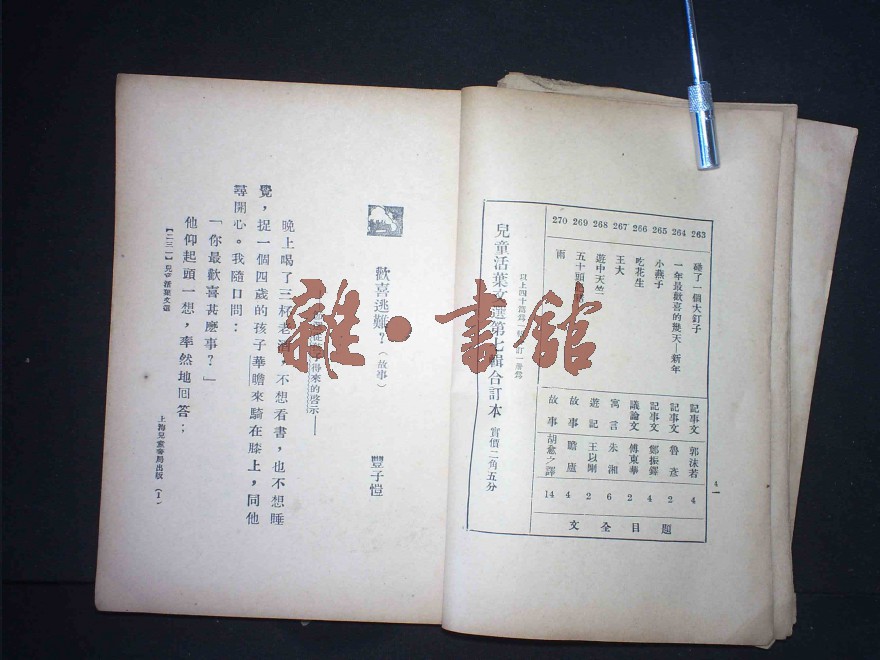 263 碰了一個大釘子 記事文 郭沫若 4
264 一年最歡喜的幾天—新年 記事文 魯彥 2
265 小燕子 記事文 鄭振鐸 4
266 吃花生 議論文 傅東華 2
267 王大 寓言 朱湘 6
268 遊中天竺 遊記 王以剛 2
269 五十頭 故事 4
270 雨 故事 胡愈之譯 14
題目全文
以上四十篇爲一輯合訂一册爲
兒童活葉文選第七輯合訂本 實價二角五分
4
歡喜逃難？（故事） 豐子愷
得來的啓示——
晚上喝了三杯老酒，不想看書，也不想睡
覺，捉一個四歲的孩子華瞻來騎在膝上，同他
尋開心。我隨口問：
「你最歡喜甚麼事？」
他仰起頭一想，率然地回答：
【二三一】兒童活葉文選 上海兒童書局出版 (1)
雜·書館